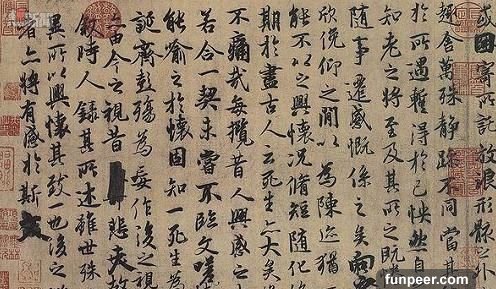 或因寄所託放浪形骸之外
趣舍萬殊靜躁不同當其
於所遇蹔得於己怏然自
知老之將至及其所之既
隨事遷感慨係之矣向
欣俛仰之閒以為陳迹猶
能不以之興懷況脩短隨化
期於盡古人云死生亦大矣
不痛哉每攬昔人興感之
若合一契未嘗不臨文嗟
能喻之於懷固知一死生為
誕齊彭殤為妄作後之視
亦由今之視昔悲夫故
敘時人錄其所述雖世殊
異所以興懷其致一也後之
者亦將有感於斯文
funpeer.com